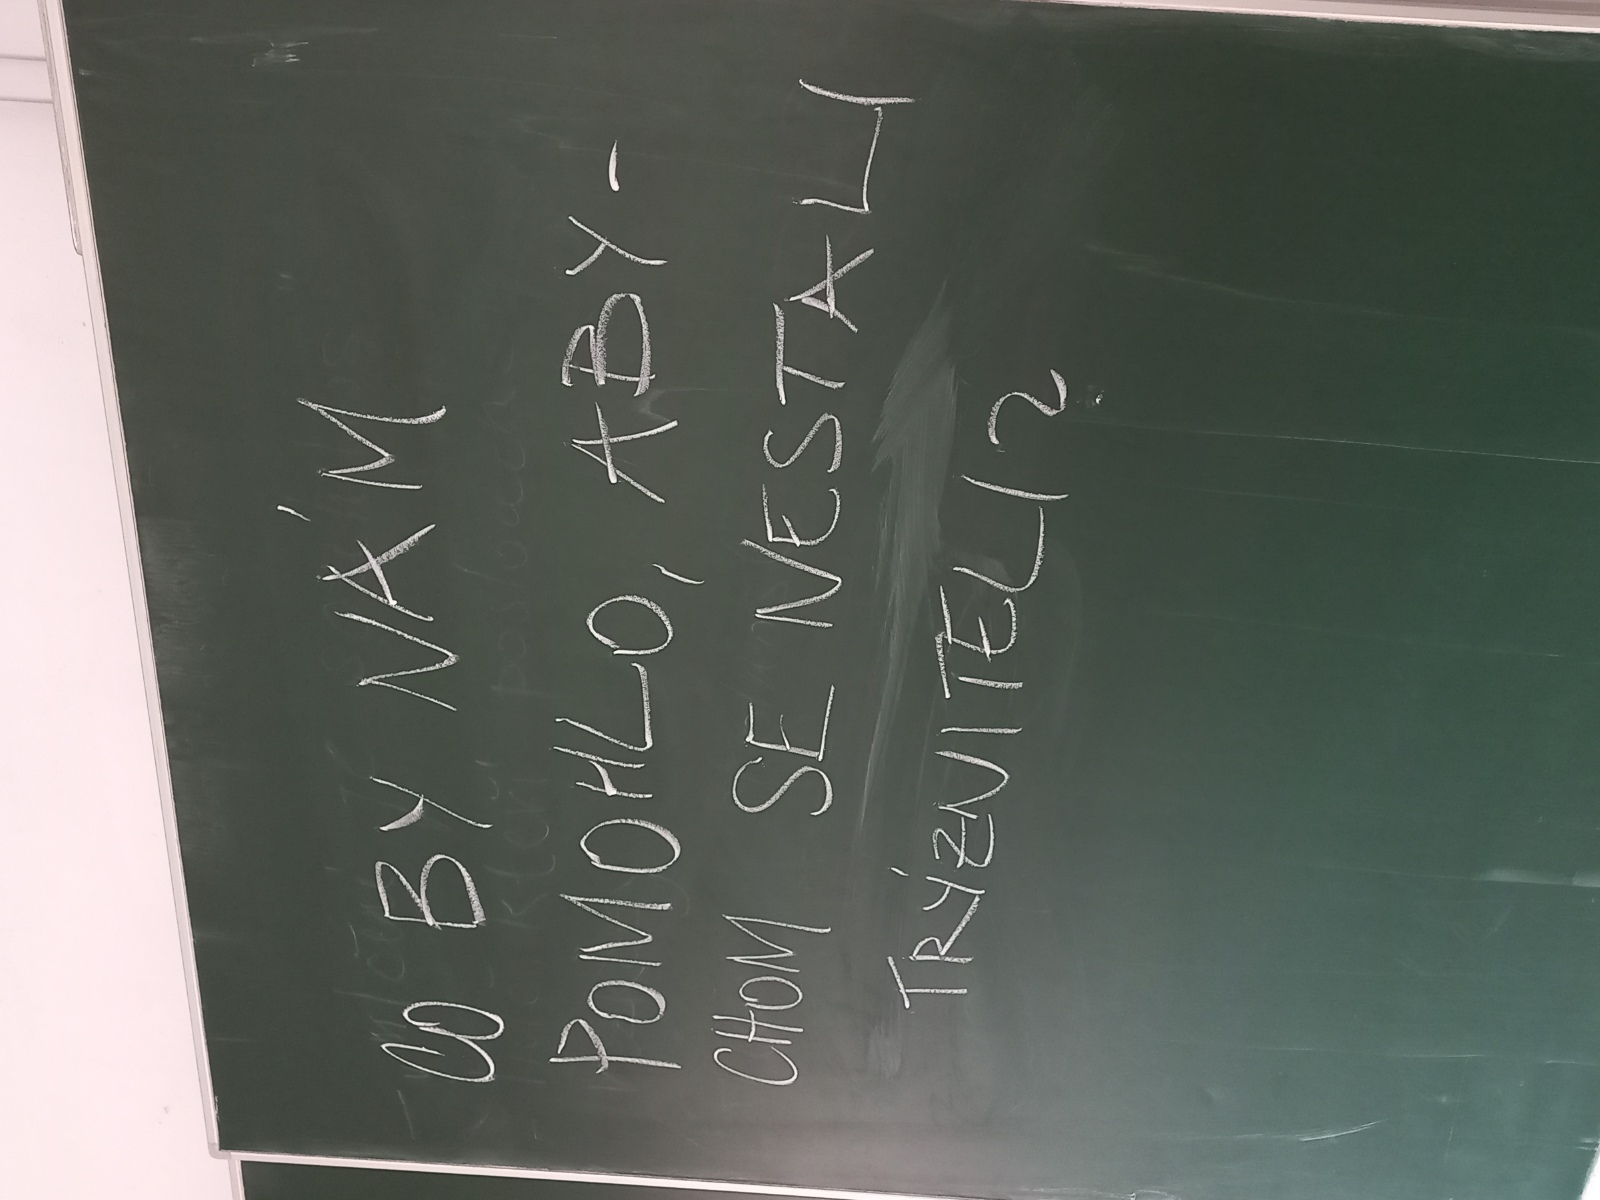 CO BY NÁM
POMOHLO, ABY-
CHOM SE NESTALI
TRÝZNITELI?